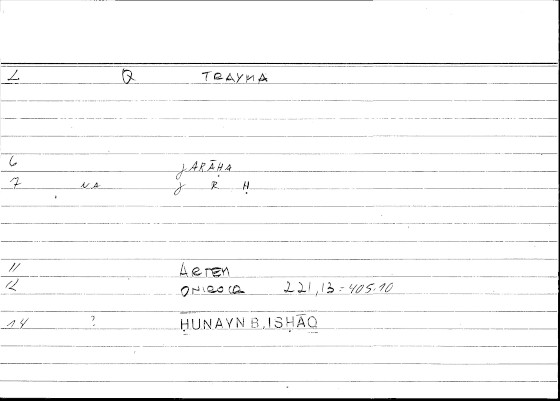 1 Q TRAYMA
6 ǦARĀḤA
7 NA Ǧ R Ḥ
11 ARTEM
12 ONIROCR 221,13=405.10
14 ? ḤUNAYN B. ISḤĀQ